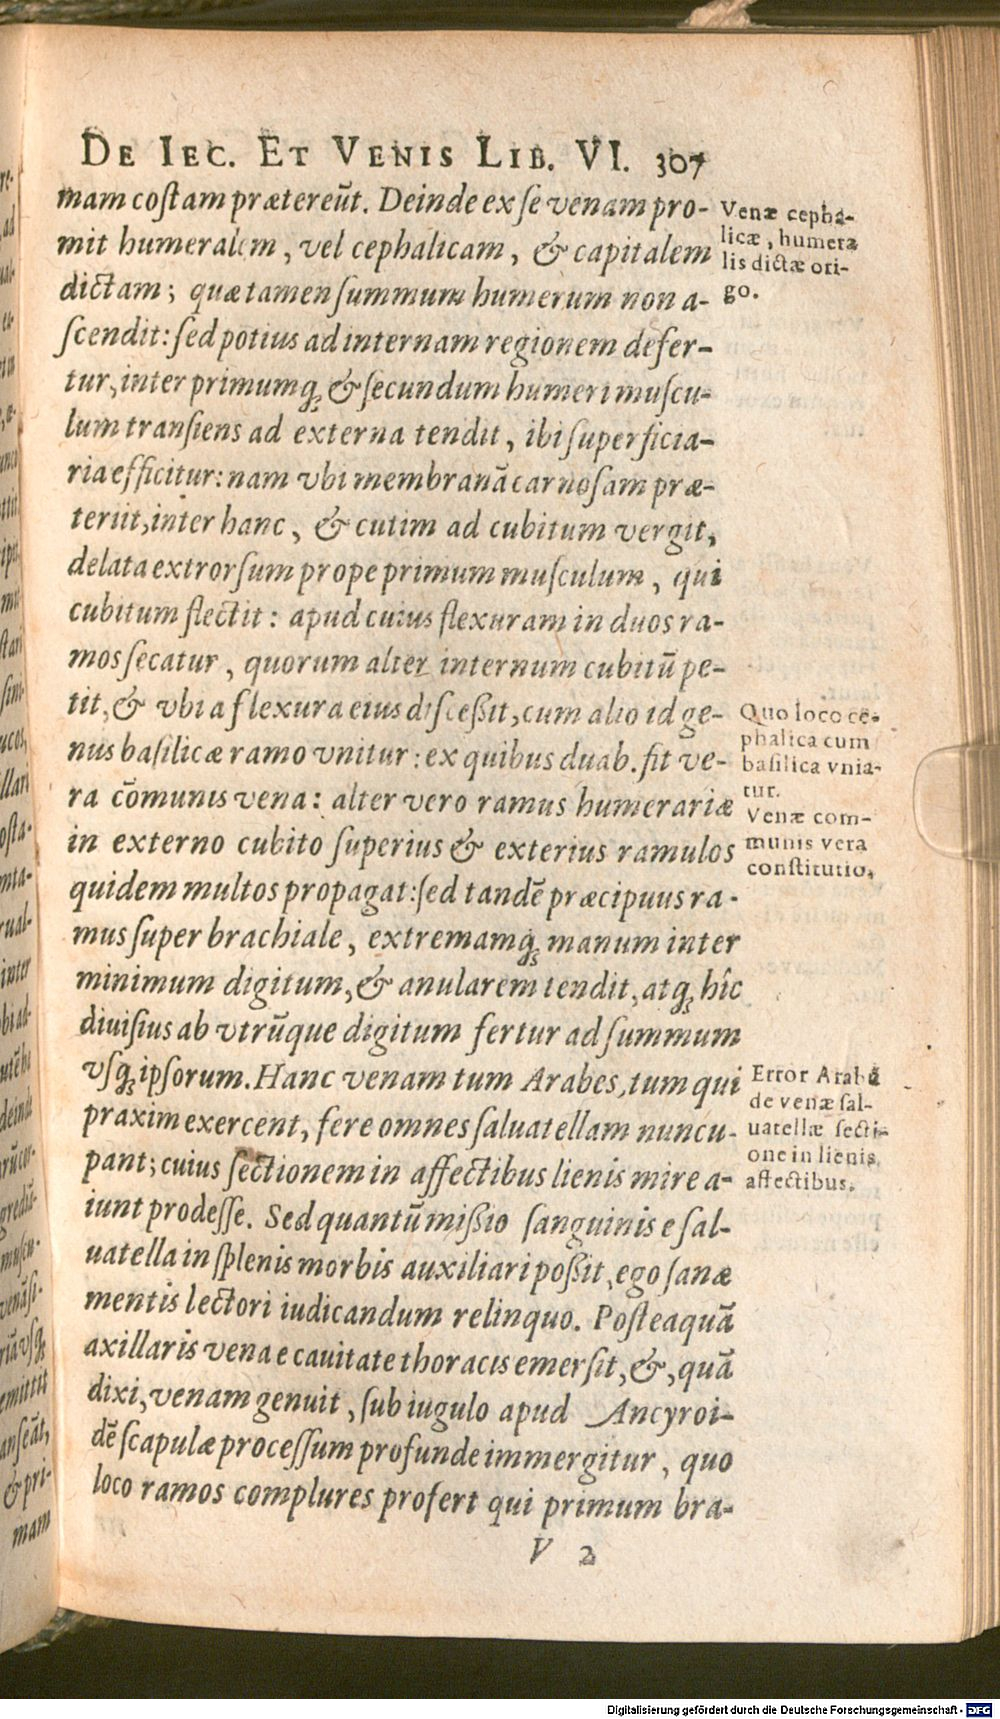 DE IEC. ET VENIS LIB. VI. 307
mam coſtam prætereūt. Deinde ex ſe venam pro-
mit humeralem, vel cephalicam, & capitalem
dictam; quæ tamen ſummum humerum non a-
ſcendit: ſed potius ad internam regionem defer-
tur, inter primumq́; & ſecundum humeri muſcu-
lum tranſiens ad externa tendit, ibi ſuperficia-
ria efficitur: nam vbi membranā carnoſam præ-
teriit, inter hanc, & cutim ad cubitum vergit,
delata extrorſum prope primum muſculum, qui
cubitum flectit: apud cuius flexuram in duos ra-
mos ſecatur, quorum alter internum cubitū pe-
tit, & vbi a flexura eius diſceßit, cum alio id ge-
nus baſilicæ ramo vnitur: ex quibus duab. fit ve-
ra cōmunis vena: alter vero ramus humerariæ
in externo cubito ſuperius & exterius ramulos
quidem multos propagat: ſed tandē præcipuus ra-
mus ſuper brachiale, extremamq́; manum inter
minimum digitum, & anularem tendit, atq; hîc
diuiſius ab vtrūque digitum fertur ad ſummum
vſq; ipſorum. Hanc venam tum Arabes, tum qui
praxim exercent, fere omnes ſaluatellam nuncu-
pant; cuius ſectionem in affectibus lienis mire a-
iunt prodeſſe. Sed quantū mißio ſanguinis e ſal-
uatella in ſplenis morbis auxiliari poßit, ego ſanæ
mentis lectori iudicandum relinquo. Poſteaquā
axillaris vena e cauitate thoracis emerſit, &, quā
dixi, venam genuit, ſub iugulo apud Ancyroi-
dē ſcapulæ proceſſum profunde immergitur, quo
loco ramos complures profert qui primum bra-
V 2
Venæ cepha-
licæ, humera
lis dictæ ori-
go.
Quo loco ce-
phalica cum
baſilica vnia-
tur.
Venæ com-
munis vera
conſtitutio.
Error Arabū
de venæ ſal-
uatellæ ſecti-
one in lienis
affectibus.
Digitalisierung gefördert durch die Deutsche Forschungsgemeinschaft - DFG